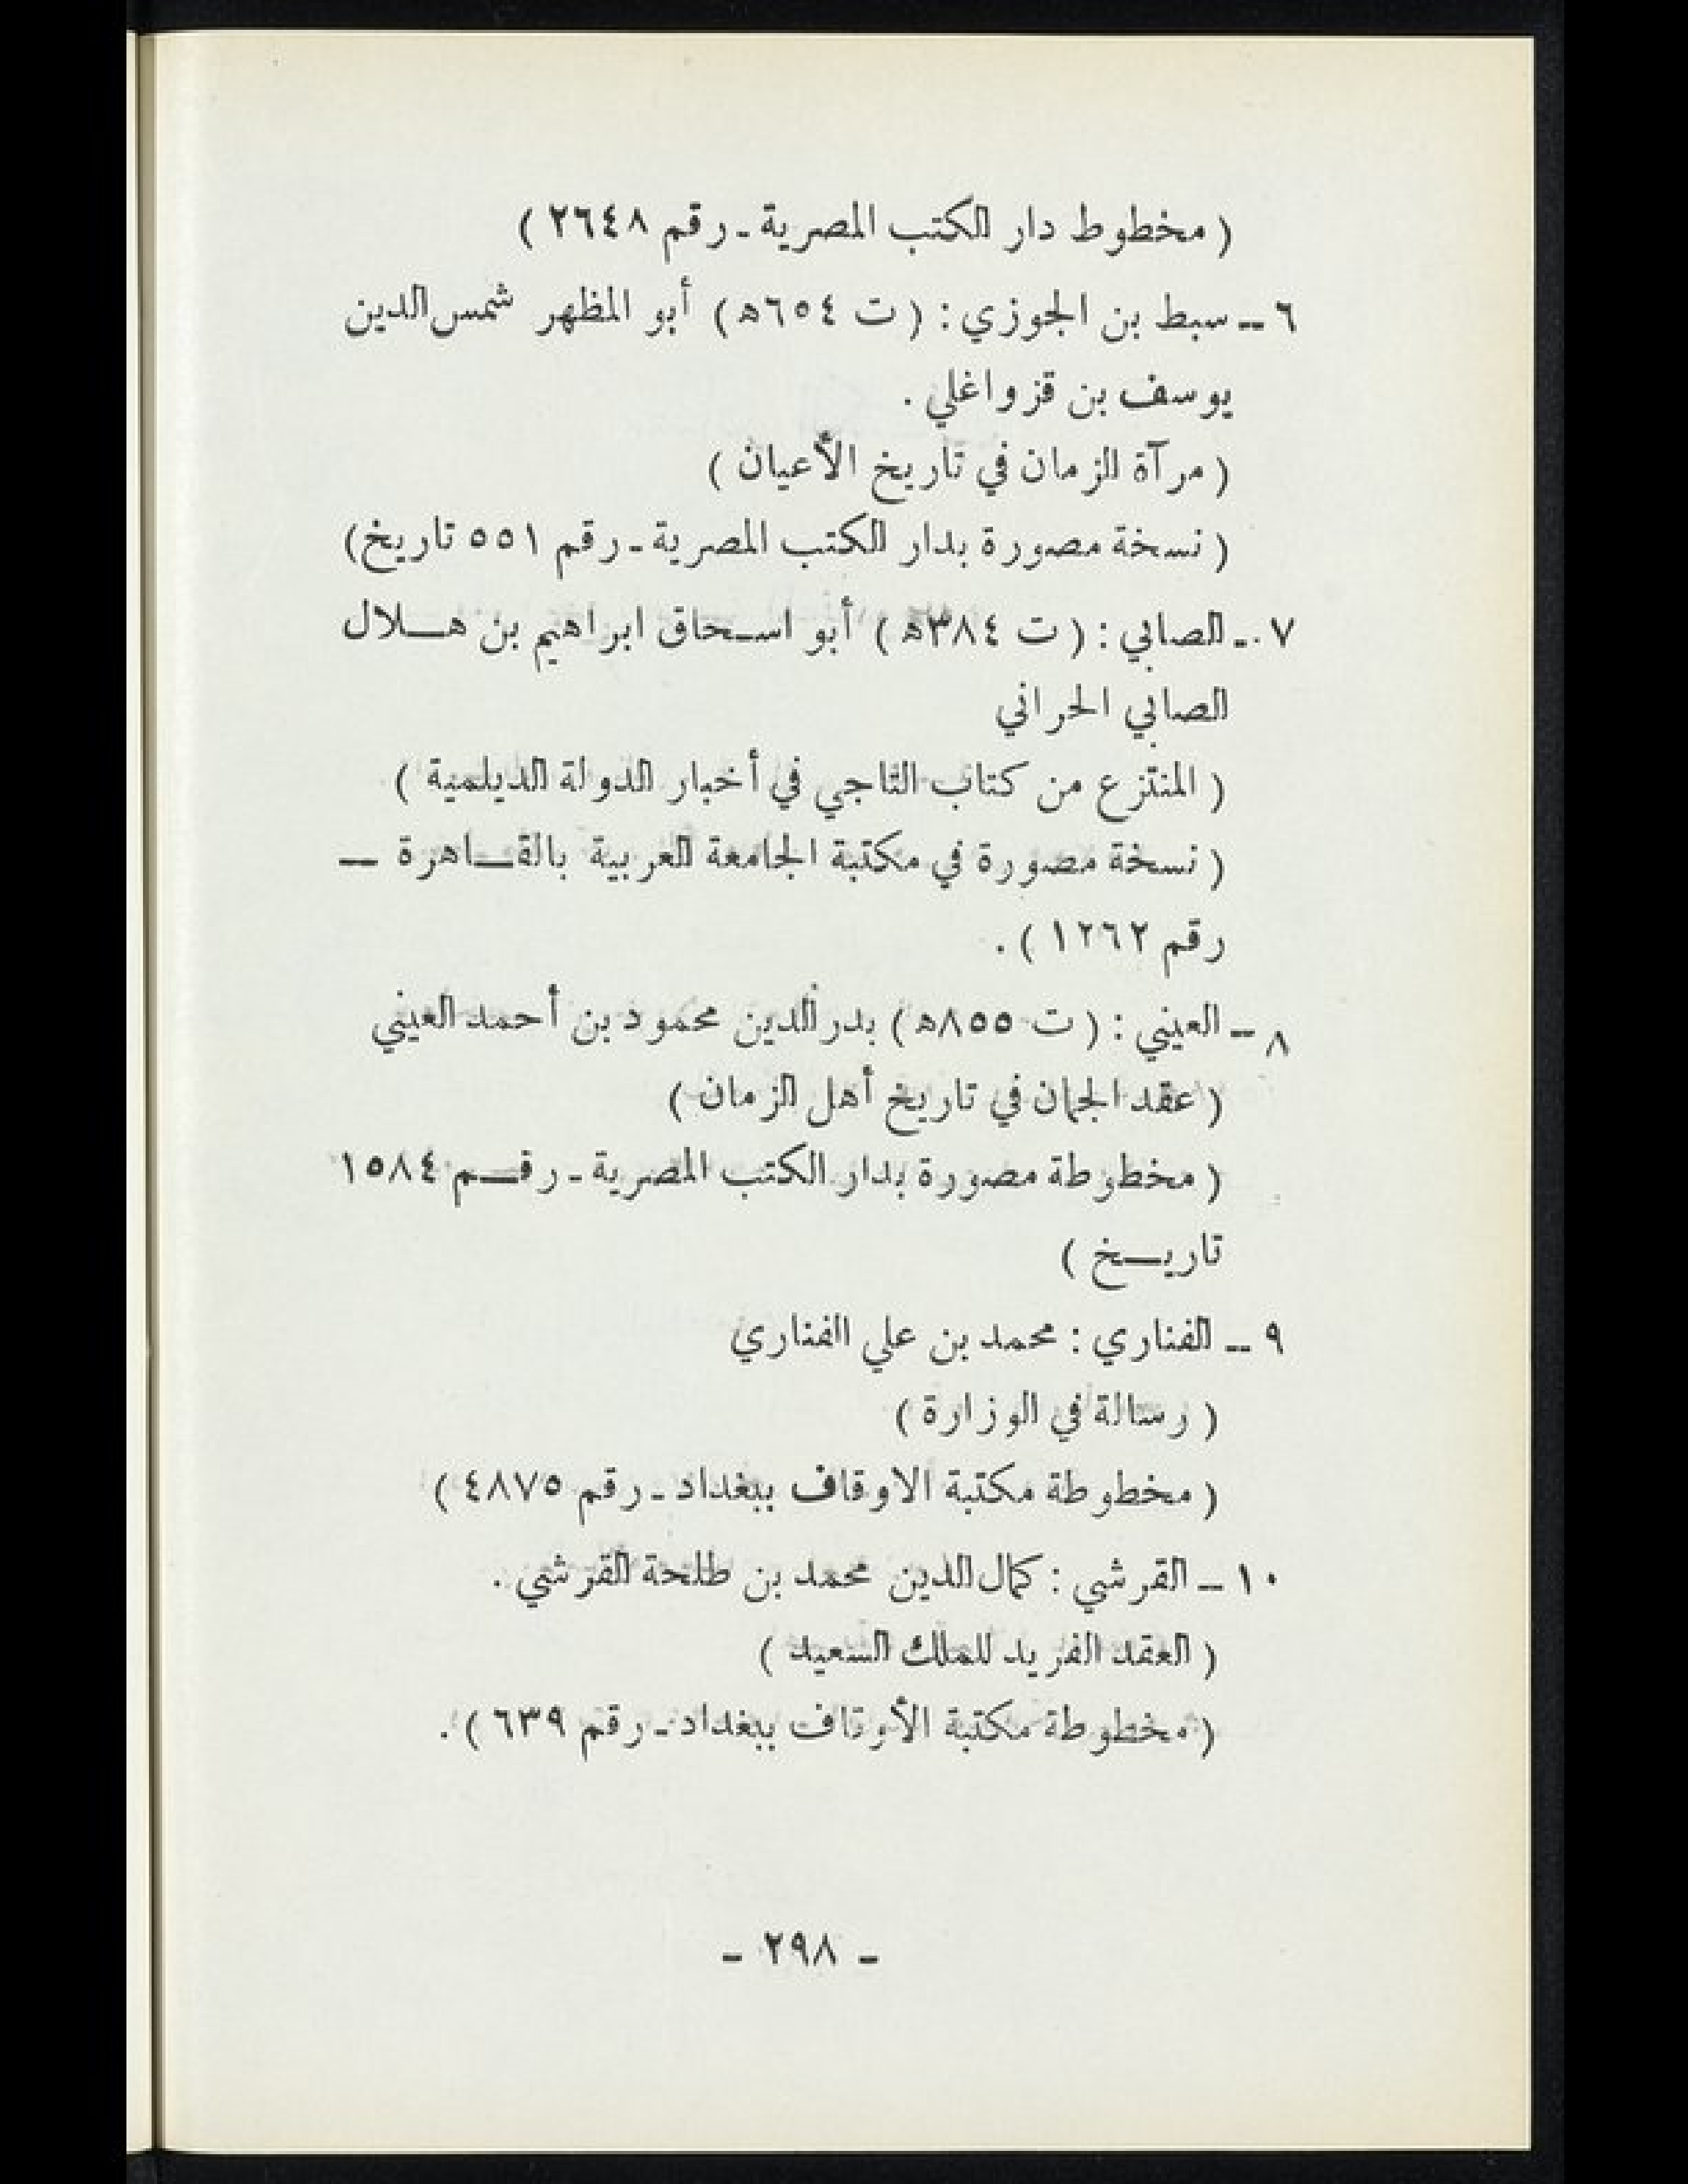 ( مخطوط دار الكتب المصرية ـ رقم ٢٦٤٨ )
٦ ــ سبط بن الجوزي : ( ت ٦٥٤ه ) أبو المظهر شمس الدين
يوسف بن قزواغلي .
( مرآة الزمان في تاريخ الأعيان )
( نسخة مصورة بدار الكتب المصرية ـ رقم ٥٥١ تاريخ )
٧ ـ الصابي : ( ت ٣٨٤ه ) أبو اسـحاق ابراهيم بن هـــلال
الصابي الحراني
( المنتزع من كتاب التاجي في أخبار الدولة الديلمية )
( نسخة مصورة في مكتبة الجامعة العربية بالقـــاهرة ــ
رقم ١٢٦٢ ) .
٨ ــ العيني : ( ت ٨٥٥ه ) بدر الدين محمود بن أحمد العيني
( عقد الجمان في تاريخ أهل الزمان )
( مخطوطة مصورة بدار الكتب المصرية ـ رقـــم ١٥٨٤
تاريـــخ )
٩ ــ الفناري : محمد بن علي الفناري
( رسالة في الوزارة )
( مخطوطة مكتبة الاوقاف ببغداد ـ رقم ٤٨٧٥ )
١٠ ــ القرشي : كمال الدين محمد بن طلحة القرشي .
( العقد الفريد للملك السعيد )
( مخطوطة مكتبة الأوقاف ببغداد ـ رقم ٦٣٩ ) .
ـ ٢٩٨ ـ